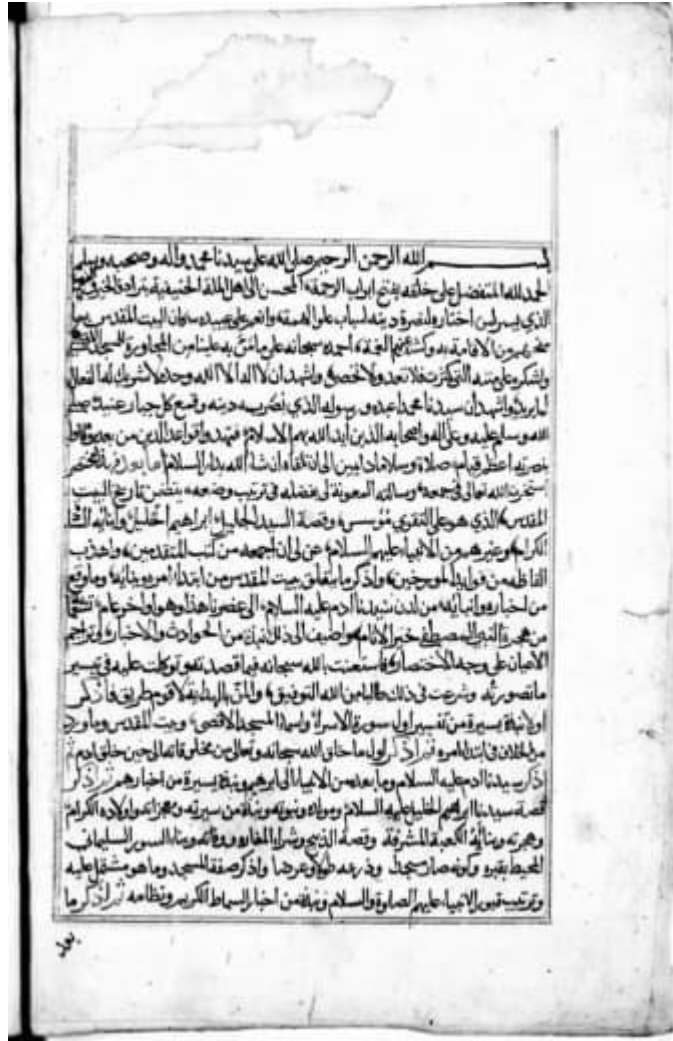 بسم الله الرحمن الرحيم صلى الله على سيدنا محمد واله وصحبه وسلم
الحمد لله المتفضل على خلقه بفتح ابواب الرحمة المحسن الى اهل الملة الحنيفية بترادف الخير
الذي يسر لمن اختاره لنصرة دينه اسباب علو الهمة وانعم على عبيده سكان البيت المقدس بما
منحهم من الاقامة به وكشف عنهم الغمة احمده سبحانه على ما من به علينا من المجاورة للمسجد
واشكره على مننه التي كثرت فلا تعد ولا تحصى واشهد ان لا اله الا الله وحده لا شريك له الفعال
لما يريد واشهد ان سيدنا محمدا عبده ورسوله الذي نصر به دينه وقمع كل جبار عنيد صلى
الله وسلم عليه وعلى اله واصحابه الذين ايد الله بهم الاسلام فمهدوا قواعد الدين من بعده وقاموا
بنصرته اعظم قيام صلاة وسلاما دايمين الى ان نلقاه ان شا الله بدار السلام اما بعد فهذا مختصر
استخرت الله تعالى في جمعه وسالته المعونة لي بفضله في ترتيب وضعه يتضمن تاريخ البيت
المقدس الذي هو على التقوى مؤسس وقصة السيد الجليل ابراهيم الخليل وابنايه
الكرام وغيرهم من الانبياء عليهم السلام عن لي ان اجمعه من كتب المتقدمين واهذب
الفاظه من فوايد المورخين واذكر ما يتعلق ببيت المقدس من ابتداء امره وبنايه وما وقع
من اخباره وانبايه من لدن سيدنا ادم عليه السلام الى عصرنا هذا وهو اواخر عام
من هجرة النبي المصطفى خير الانام واضيف الى ذلك نبذة من الحوادث والاخبار وتراجم
الاعيان على وجه الاختصار فاستعنت بالله سبحانه فيما قصدته وتوكلت عليه في تيسير
ما تصورته وشرعت في ذلك طالبا من الله التوفيق والمن بالهداية لاقوم طريق فاذكر
اولا نبذة يسيرة من تفسير اول سورة الاسراء واسماء المسجد الاقصى وبيت المقدس وما ورد
من الخلاف في ابتداء امره ثم اذكر اول ما خلق الله سبحانه وتعالى من مخلوقاته الى حين خلق ادم ثم
اذكر سيدنا ادم عليه السلام وما بعده من الانبياء الى ابراهيم ونبذة يسيرة من اخبارهم ثم اذكر
قصة سيدنا ابراهيم الخليل عليه السلام ومولده ونبوته ونبذة من سيرته ومعجزاته واولاده الكرام
وهجرته وبنائه الكعبة المشرفة وقصة الذبيح وشراء المغارة ووفاته وبناء السور السليماني
المحيط بقبره وكونه صار مسجدا وذرعه طولا وعرضا واذكر صفة المسجد وما هو مشتمل عليه
وترتيب قبور الانبياء عليهم الصلوة والسلام ونبذة من اخبار السماط الكريم ونظامه ثم اذكر ما
بعد